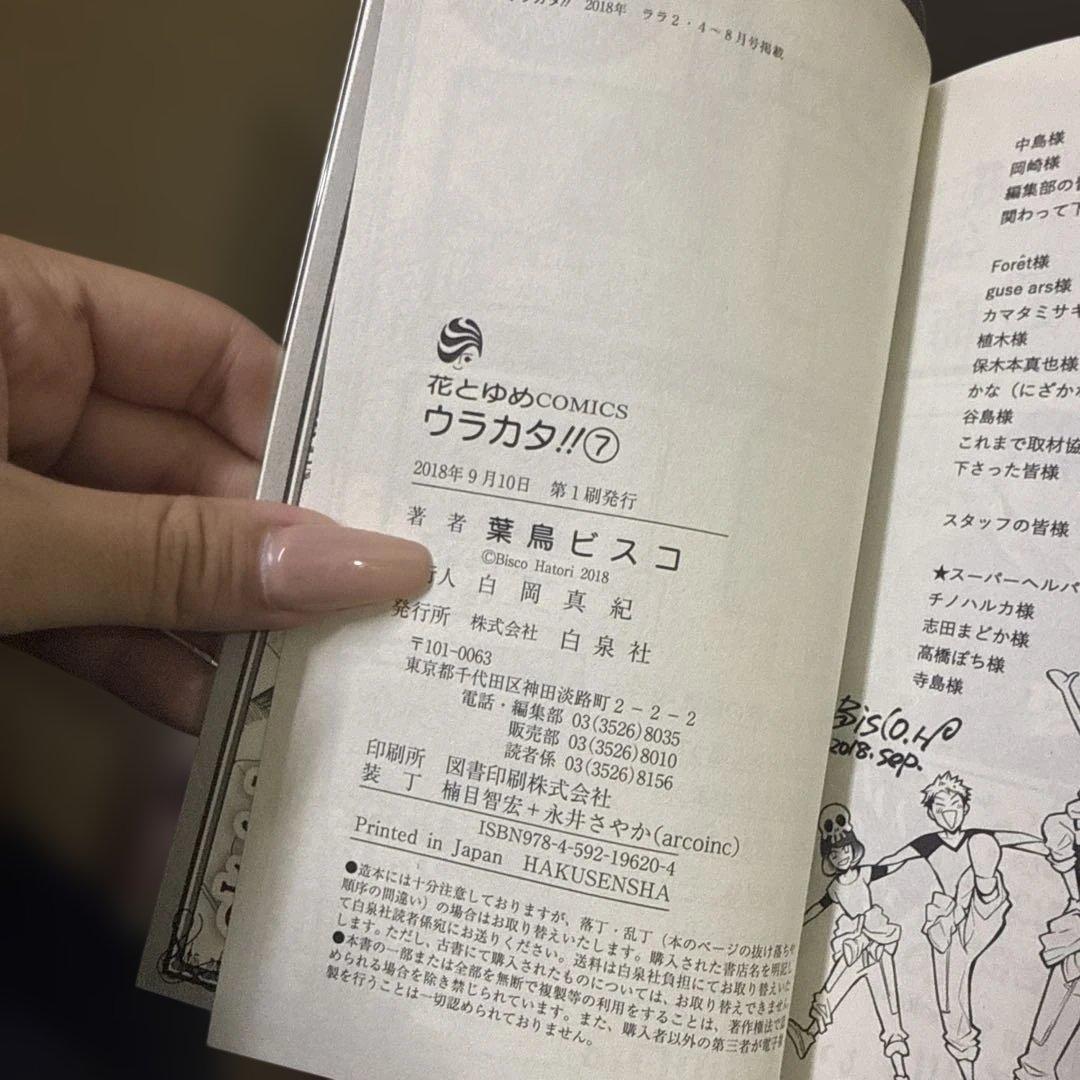 2018年 ララ2・4〜8月号掲載
花とゆめCOMICS
ウラカタ!!⑦
2018年9月10日 第1刷発行
著者 葉鳥ビスコ
©Bisco Hatori 2018
行人 白岡真紀
発行所 株式会社 白泉社
〒101-0063
東京都千代田区神田淡路町2-2-2
電話・編集部 03(3526)8035
販売部 03(3526)8010
読者係 03(3526)8156
印刷所 図書印刷株式会社
装丁 楠目智宏+永井さやか(arcoinc)
ISBN978-4-592-19620-4
Printed in Japan HAKUSENSHA
●造本には十分注意しておりますが、落丁・乱丁(本のページの抜け落ちや
順序の間違い)の場合はお取り替えいたします。購入された書店名を明記し
て白泉社読者係宛にお送りください。送料は白泉社負担にてお取り替えいた
します。ただし、古書にて購入されたものについては、お取り替えできません。
●本書の一部または全部を無断で複製等の利用をすることは、著作権法で認
められる場合を除き禁じられています。また、購入者以外の第三者が電子複
製を行うことは一切認められておりません。
中島様
岡崎様
編集部の
関わって下
Forêt様
guse ars様
カマタミサキ
植木様
保木本真也様
かな(にざかな
谷島様
これまで取材協
下さった皆様
スタッフの皆様
★スーパーヘルパ
チノハルカ様
志田まどか様
高橋ぽち様
寺島様
Bisco.H
2018.sep.